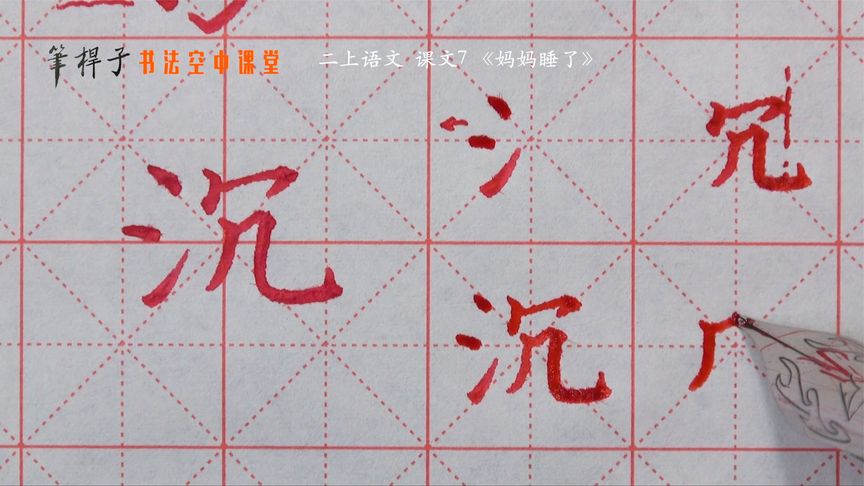 筆桿子 书法空中课堂 二上语文 课文7《妈妈睡了》
氵 冗
沉
沉